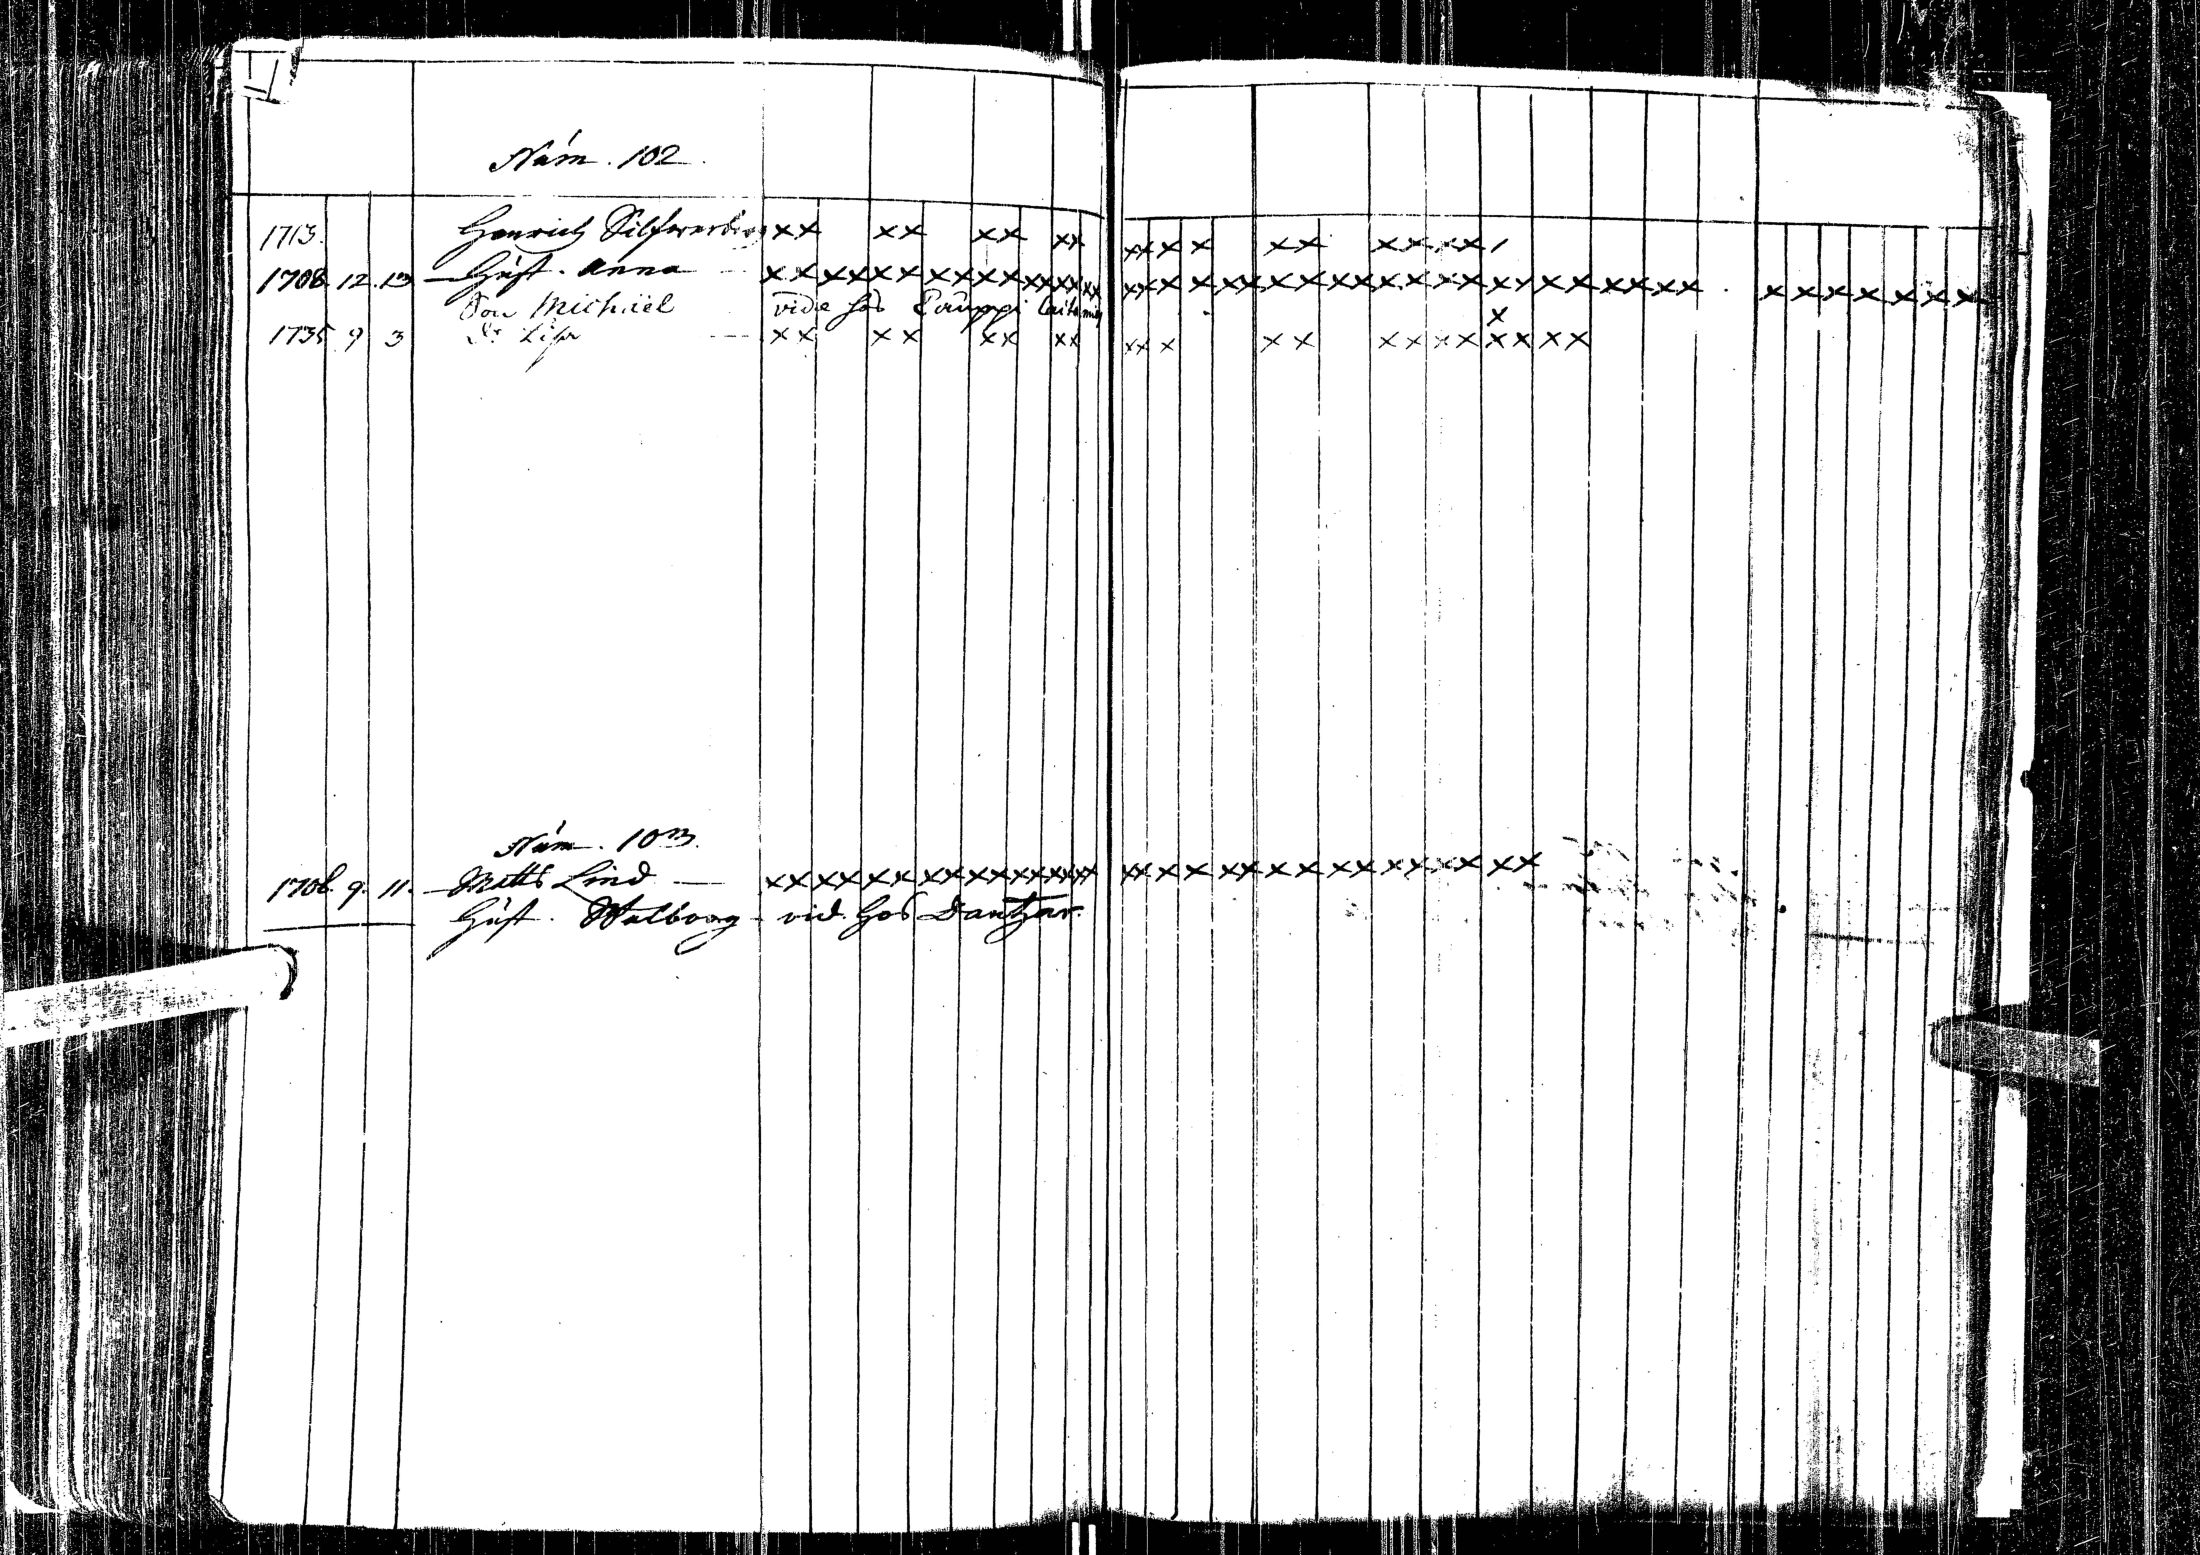 Núm. 102.
1713. Henrich Silfwerberg xx xx xx xx xxxx xx xxxxx
1708. 12. 13 Hust. Anna xxxxxxxxxxxxxxxxxx xxxxxxxxxxxxxxxxxxxxxxx xxxxxxxx
Son Michael vide hos Pauppi
x
1735 9 3 Dr Lisa xx xx xx xx xxx xx xxxxxxxxx
Núm. 103.
1706. 9. 11. Matts Lind xxxxxxxxxxxxxxxxxx xxxxxxxxxxxxxxxxx
Hust. Walborg vid. hos Dantzar.